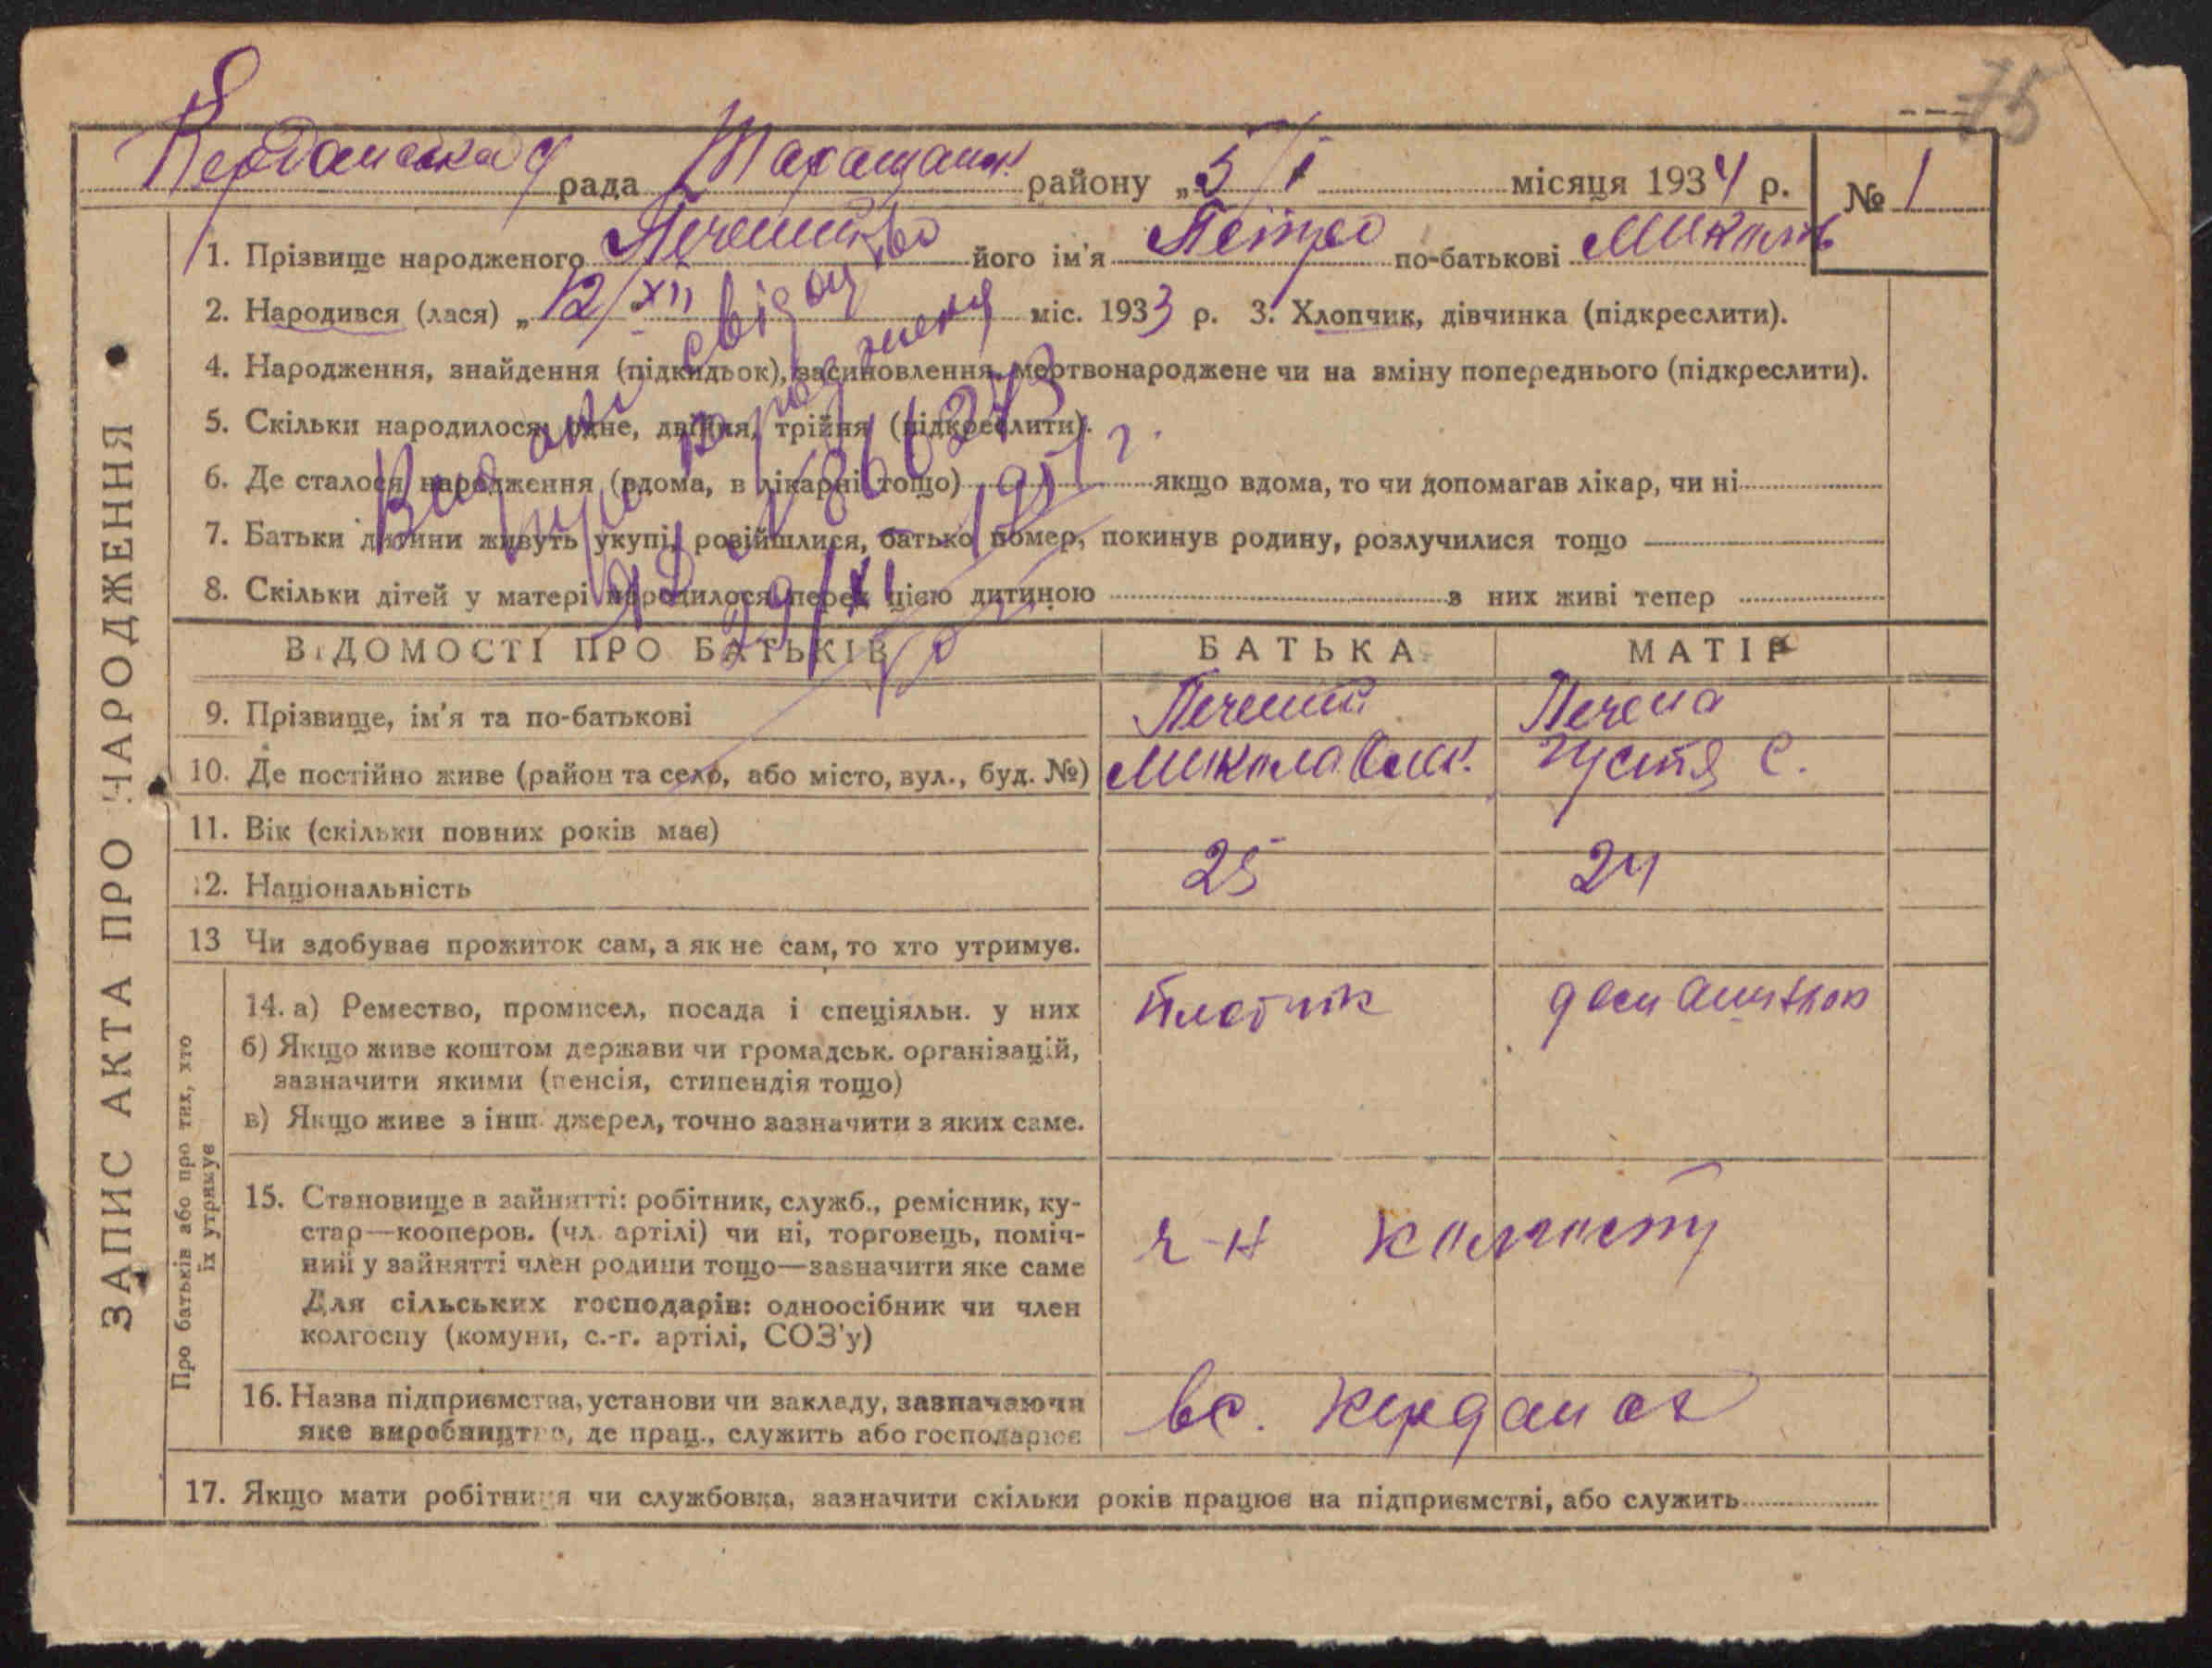 75
Керданська рада Таращанськ. району „5/I місяця 1934 р. № 1
1. Прізвище народженого Печений його ім'я Петро по-батькові Микол.
2. Народився (лася) „12/XII міс. 1933 р. 3. Хлопчик, дівчинка (підкреслити).
4. Народження, знайдення (підкидьок), засиновлення, мертвонароджене чи на зміну попереднього (підкреслити).
5. Скільки народилося: одне, двійня, трійня (підкреслити).
6. Де сталося народження (вдома, в лікарні тощо) якщо вдома, то чи допомагав лікар, чи ні
7. Батьки дитини живуть укупі, розійшлися, батько помер, покинув родину, розлучилися тощо
8. Скільки дітей у матері народилося перед цією дитиною з них живі тепер
Видано свідоцтво
про народження
29/XI 1951 г.
ВІДОМОСТІ ПРО БАТЬКІВ БАТЬКА МАТІР
9. Прізвище, ім'я та по-батькові Печений Печена
10. Де постійно живе (район та село, або місто, вул., буд. №) Микола Устя С.
11. Вік (скільки повних років має) 25 24
12. Національність
13 Чи здобуває прожиток сам, а як не сам, то хто утримує.
14. а) Ремество, промисел, посада і спеціяльн. у них
б) Якщо живе коштом держави чи громадськ. організацій,
зазначити якими (пенсія, стипендія тощо)
в) Якщо живе з інш. джерел, точно зазначити з яких саме.
15. Становище в зайнятті: робітник, служб., ремісник, ку-
стар—кооперов. (чл. артілі) чи ні, торговець, поміч-
ний у зайнятті член родини тощо—зазначити яке саме
Для сільських господарів: одноосібник чи член
колгоспу (комуни, с.-г. артілі, СОЗ'у)
ч-н колгоспу
16. Назва підприємства, установи чи закладу, зазначаючи
яке виробництво, де прац., служить або господарює
вс. Кердани
17. Якщо мати робітниця чи службовка, зазначити скільки років працює на підприємстві, або служить
ЗАПИС АКТА ПРО НАРОДЖЕННЯ
Про батьків або про тих, хто
їх утримує